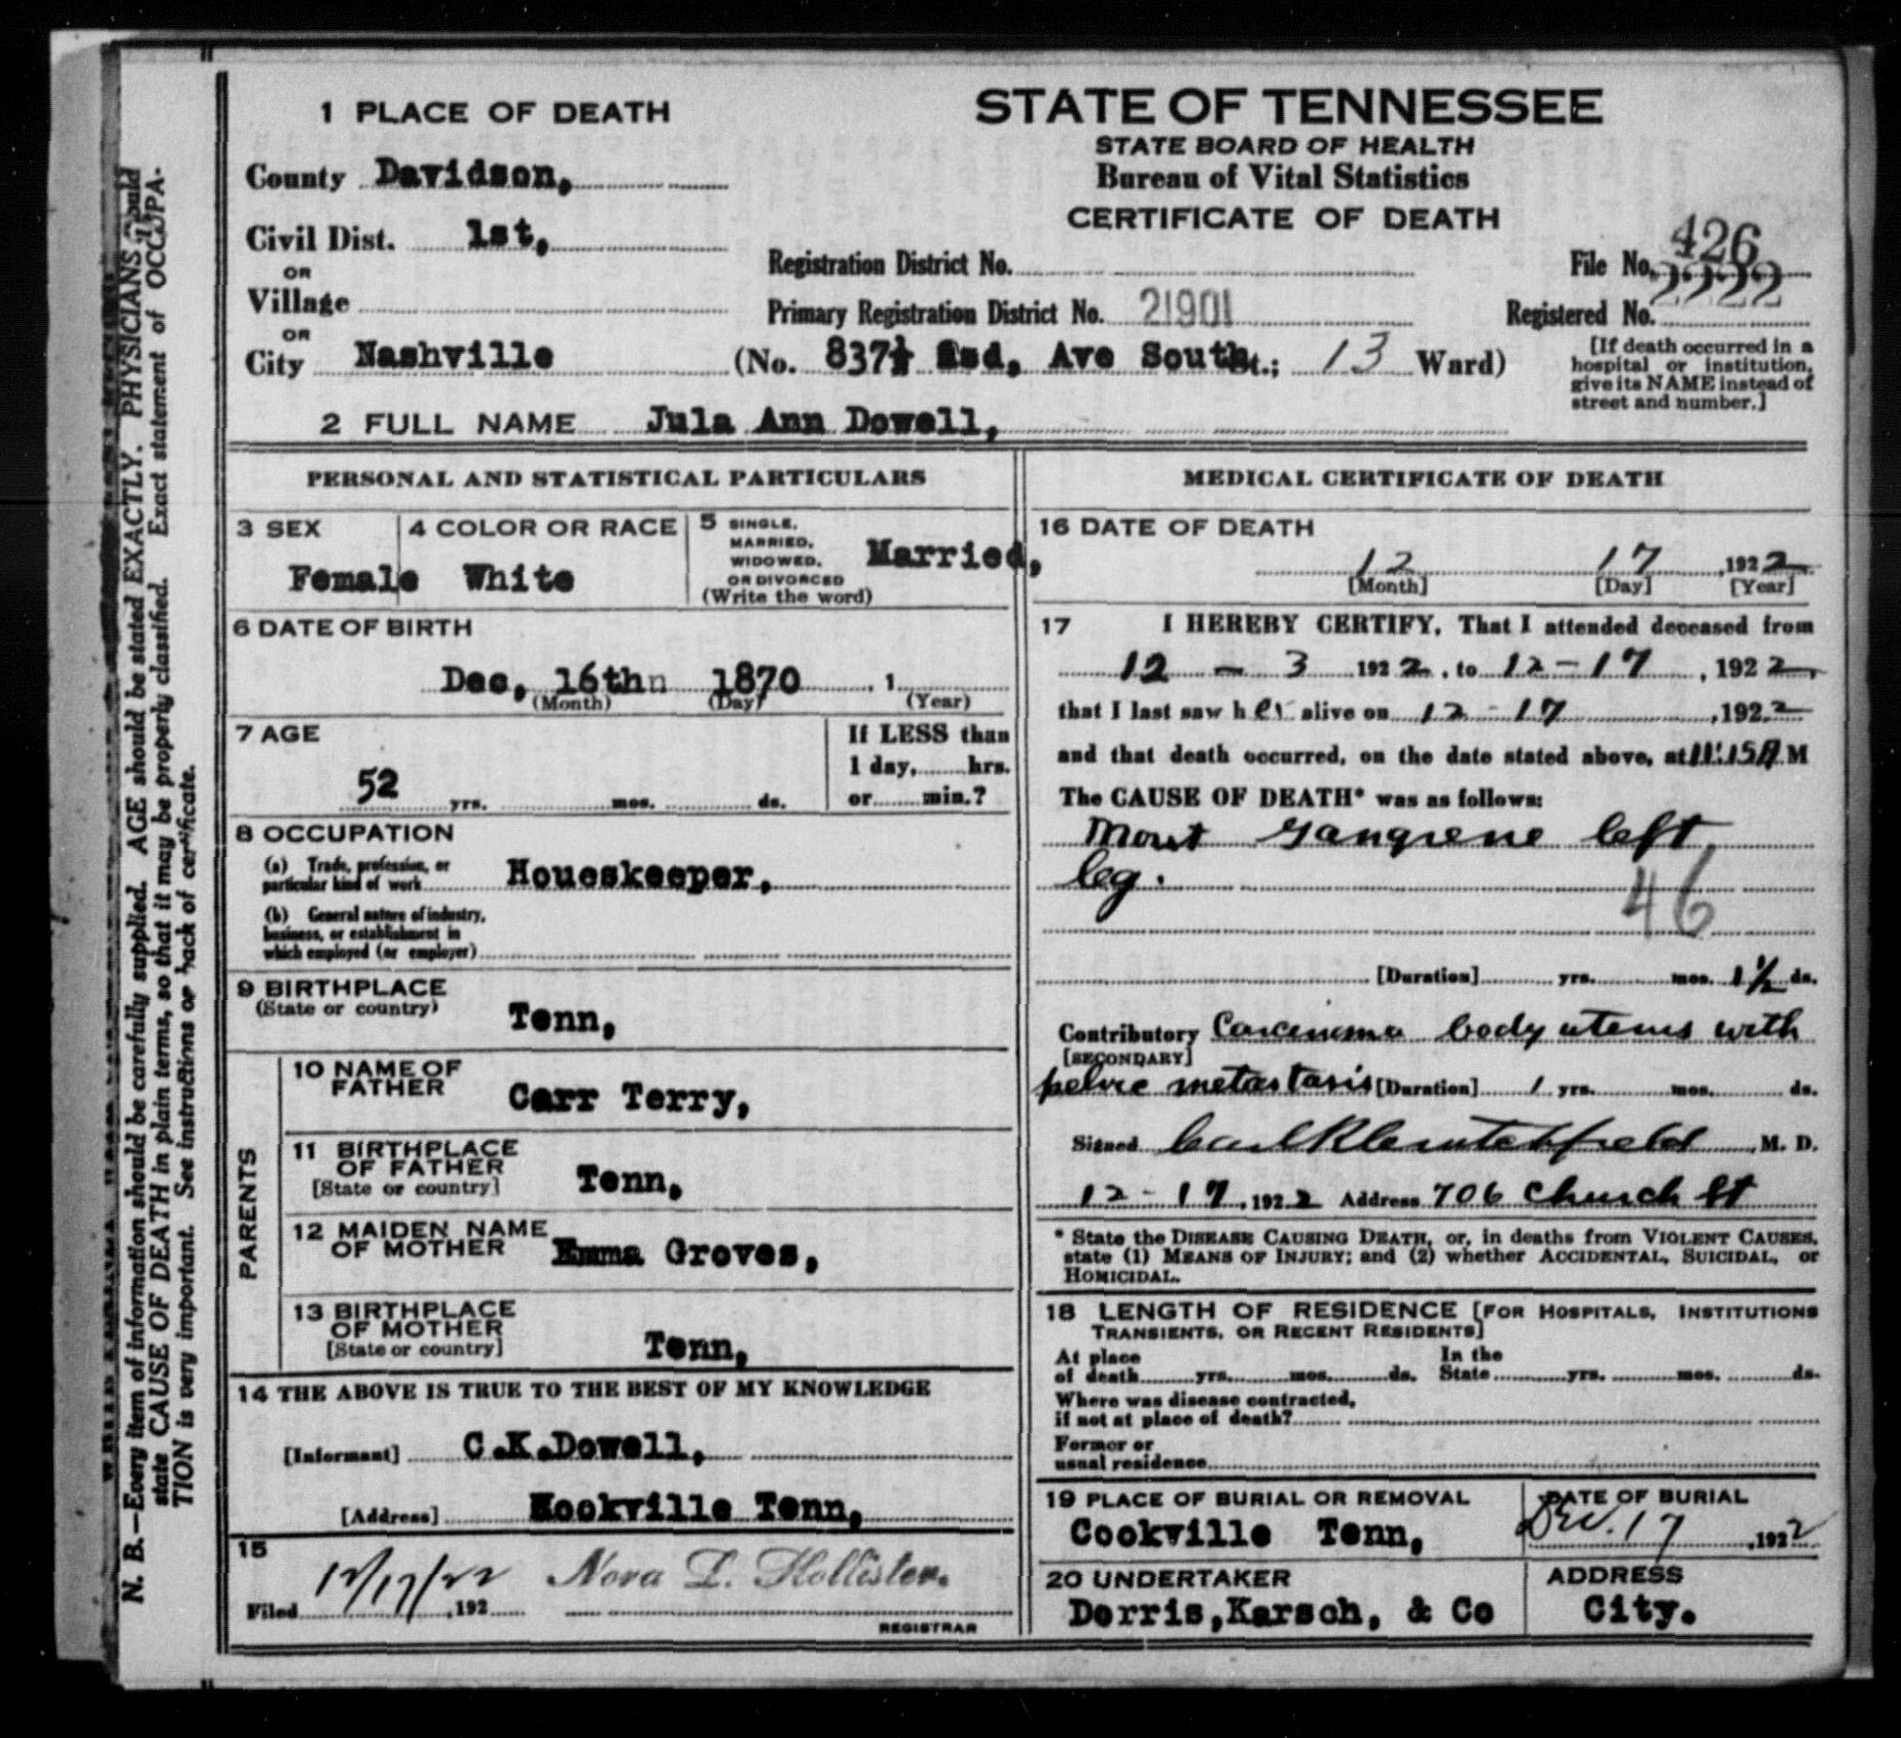 1 PLACE OF DEATH
STATE OF TENNESSEE
STATE BOARD OF HEALTH
Bureau of Vital Statistics
CERTIFICATE OF DEATH
County Davidson,
Civil Dist. 1st,
OR
Village
OR
City Nashville (No. 837½ 2nd, Ave South St.; 13 Ward)
Registration District No.
File No. 426
Primary Registration District No. 21901
Registered No. 2222
[If death occurred in a
hospital or institution,
give its NAME instead of
street and number.]
2 FULL NAME Jula Ann Dowell,
PERSONAL AND STATISTICAL PARTICULARS
3 SEX
Female
4 COLOR OR RACE
White
5 SINGLE,
MARRIED,
WIDOWED,
OR DIVORCED
(Write the word)
Married,
6 DATE OF BIRTH
Dec, 16th 1870 , 1
(Month) (Day) (Year)
7 AGE
52 yrs. mos. ds.
If LESS than
1 day, hrs.
or min.?
8 OCCUPATION
(a) Trade, profession, or
particular kind of work Houeskeeper,
(b) General nature of industry,
business, or establishment in
which employed (or employer)
9 BIRTHPLACE
(State or country)
Tenn,
PARENTS
10 NAME OF
FATHER
Carr Terry,
11 BIRTHPLACE
OF FATHER
[State or country]
Tenn,
12 MAIDEN NAME
OF MOTHER
Emma Groves,
13 BIRTHPLACE
OF MOTHER
[State or country]
Tenn,
14 THE ABOVE IS TRUE TO THE BEST OF MY KNOWLEDGE
[Informant] C.K.Dowell,
[Address] Kookville Tenn,
15
Filed 12/17/22, 192 Nora L. Hollister.
REGISTRAR
MEDICAL CERTIFICATE OF DEATH
16 DATE OF DEATH
12 17 , 1922
[Month] [Day] [Year]
17 I HEREBY CERTIFY, That I attended deceased from
12 - 3 1922, to 12 - 17, 1922,
that I last saw her alive on 12 - 17, 1922
and that death occurred, on the date stated above, at 11:15A M
The CAUSE OF DEATH* was as follows:
Moist Gangrene left
leg.
46
[Duration] yrs. mos. 1½ ds.
Contributory Carcinoma body uterus with
[SECONDARY]
pelvic metastasis [Duration] 1 yrs. mos. ds.
Signed M. D.
12 - 17, 1922 Address 706 Church St
* State the DISEASE CAUSING DEATH, or, in deaths from VIOLENT CAUSES,
state (1) MEANS OF INJURY; and (2) whether ACCIDENTAL, SUICIDAL, or
HOMICIDAL.
18 LENGTH OF RESIDENCE [FOR HOSPITALS, INSTITUTIONS
TRANSIENTS, OR RECENT RESIDENTS]
At place
of death yrs. mos. ds.
In the
State yrs. mos. ds.
Where was disease contracted,
if not at place of death?
Former or
usual residence
19 PLACE OF BURIAL OR REMOVAL
Cookville Tenn,
DATE OF BURIAL
Dec. 17, 1922
20 UNDERTAKER
Dorris,Karsch, & Co
ADDRESS
City.
N. B.—Every item of information should be carefully supplied. AGE should be stated EXACTLY. PHYSICIANS should
state CAUSE OF DEATH in plain terms, so that it may be properly classified. Exact statement of OCCUPA-
TION is very important. See instructions on back of certificate.